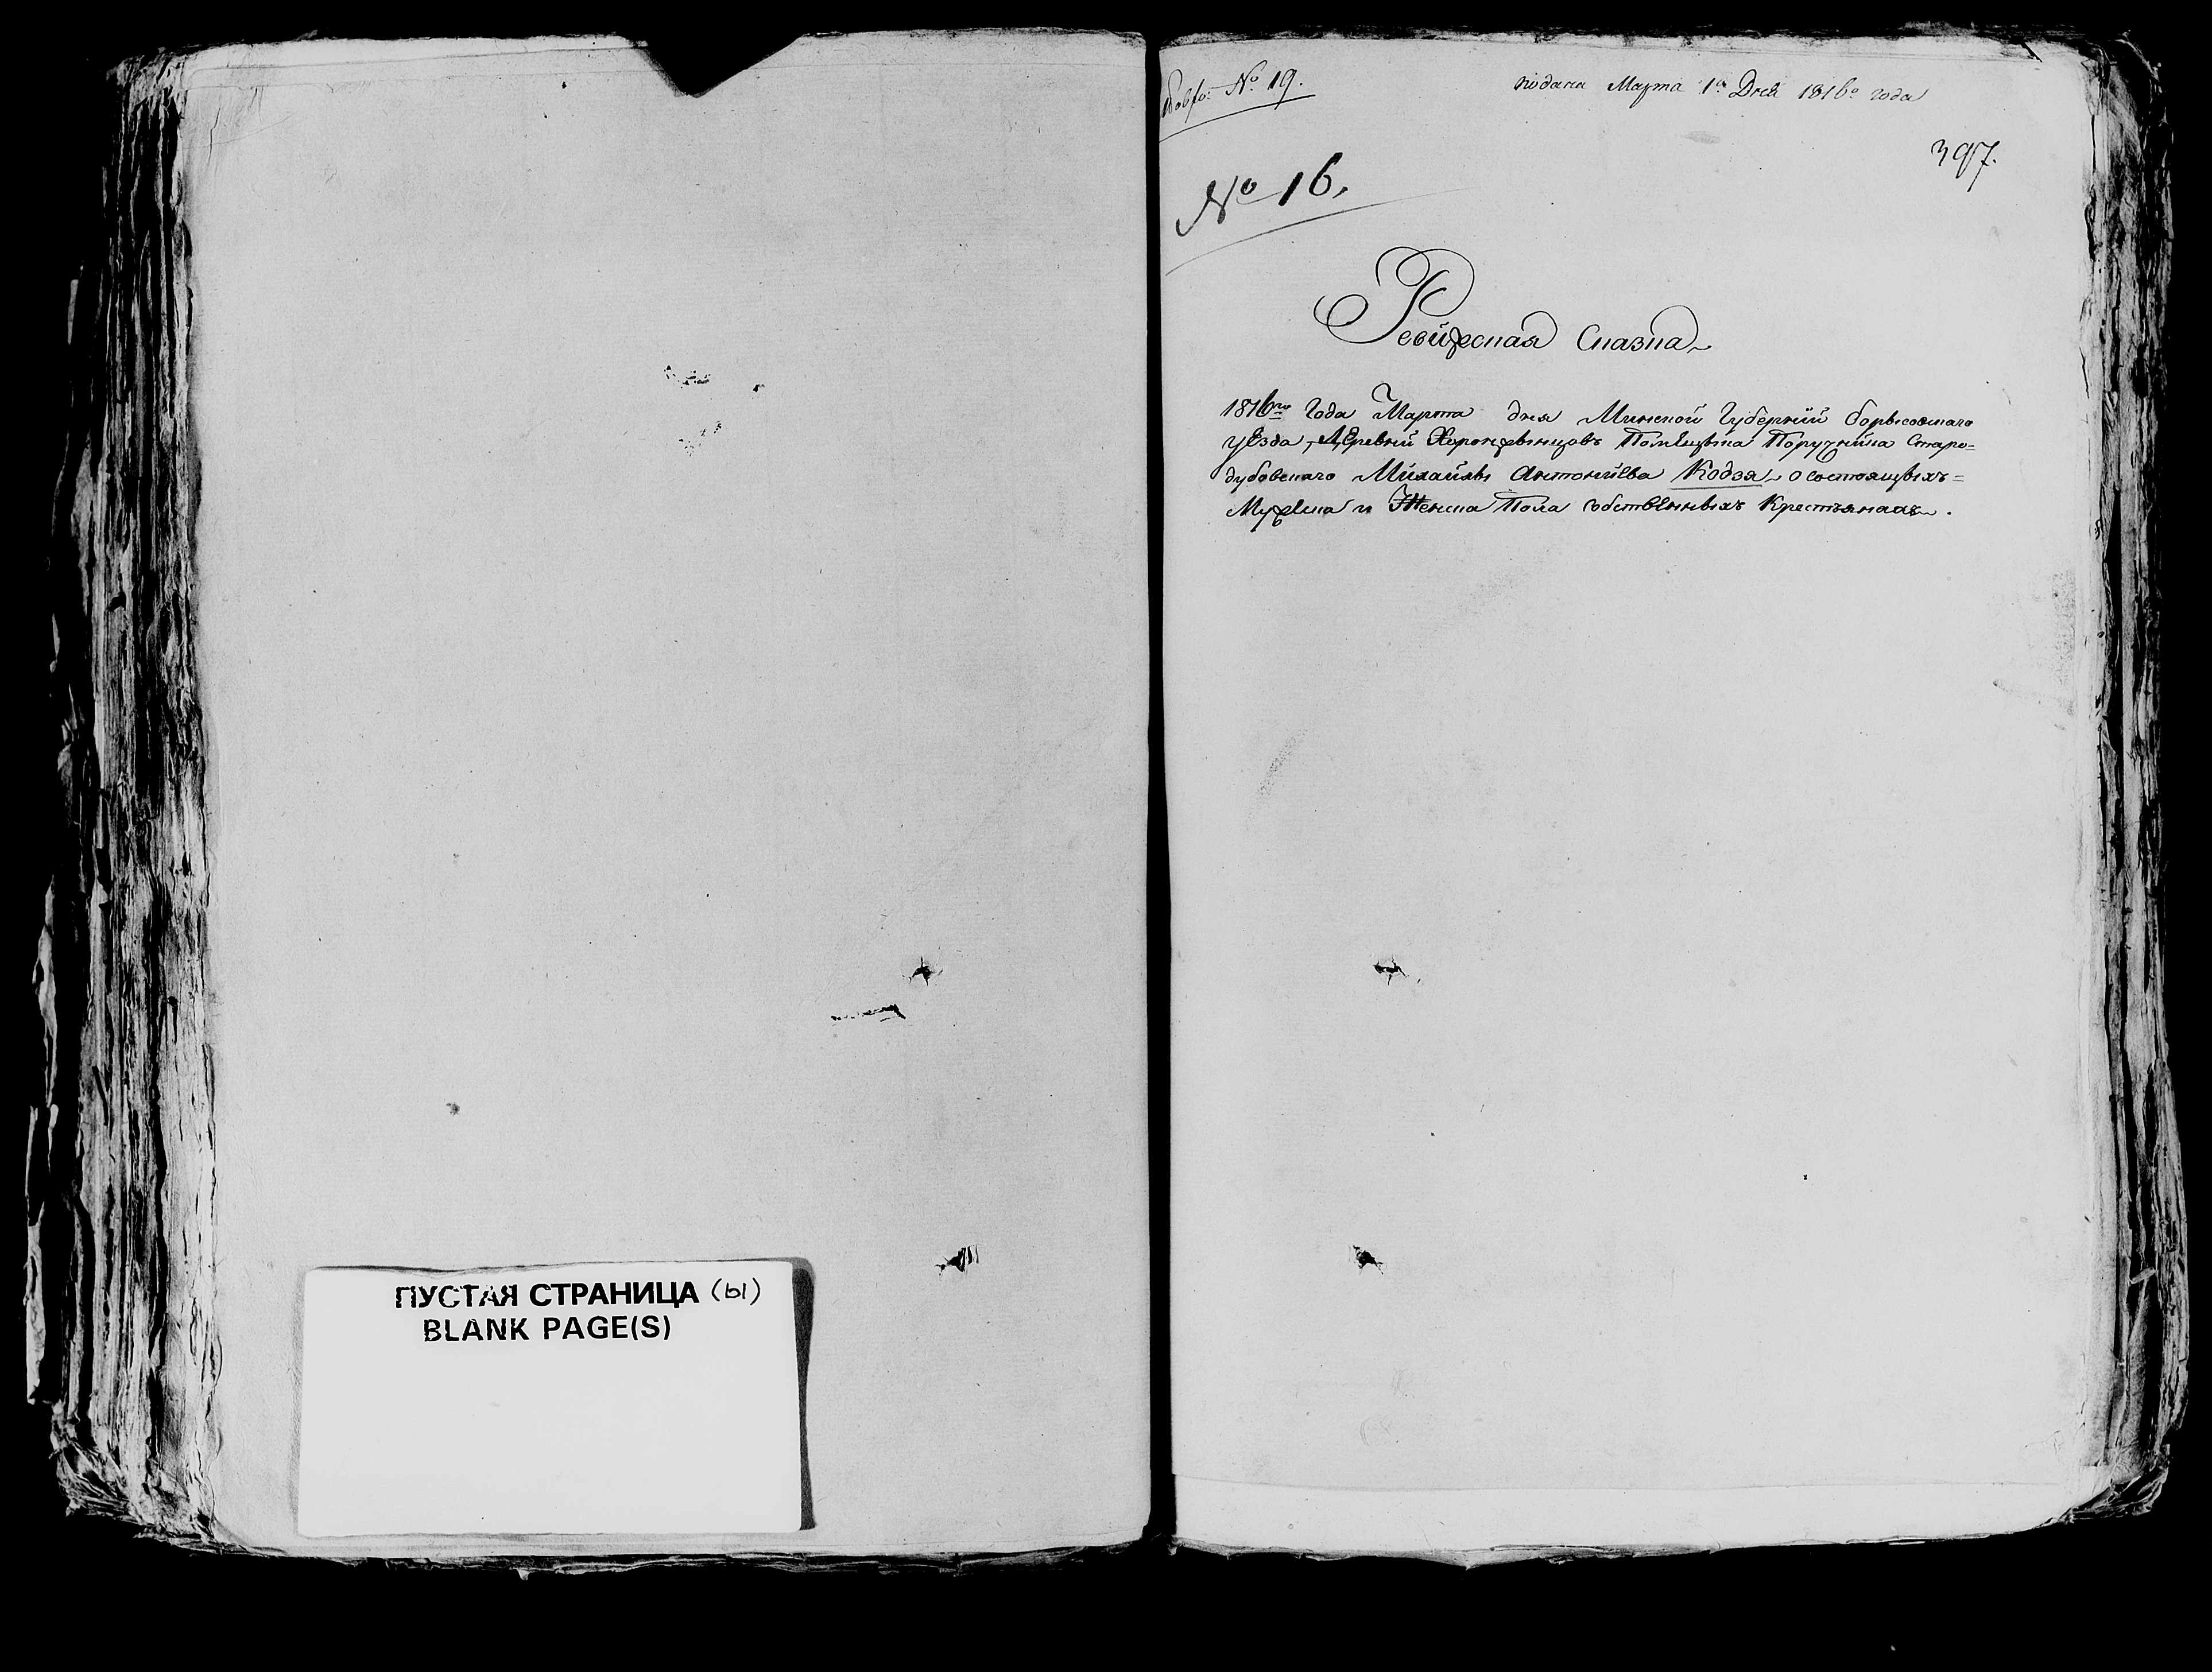 ПУСТАЯ СТРАНИЦА (ы)
BLANK PAGE(S)
№ 19.
подана Марта 1го Дня 1816го года
397.
№ 16.
Ревизская Сказка
1816го Года Марта дня Минской Губернии Борысовскаго
уезда, Деревни Помещика Поручника Старо=
дубовскаго Михайлы Антониева Кодзя о состоящыхъ=
Мужеска и Женска Пола собственныхъ Крестьянахъ.